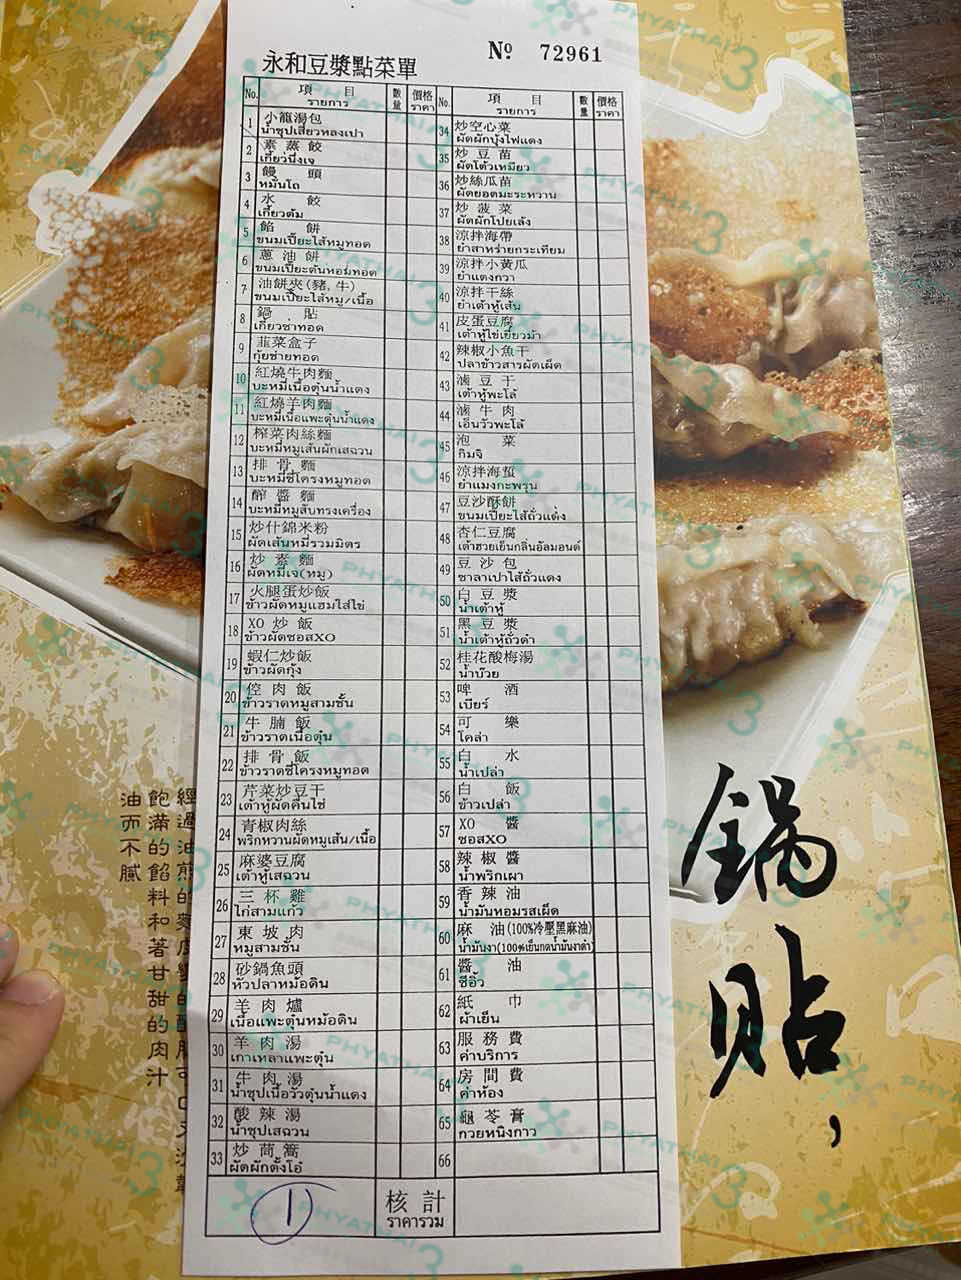 永和豆漿點菜單
№ 72961
No. 項目 數量 價格
รายการ ราคา
1 小籠湯包
น้ำซุปเสี่ยวหลงเปา
2 素蒸餃
เกี๊ยวนึ่งเจ
3 饅頭
หมั่นโถ
4 水餃
เกี๊ยวต้ม
5 餡餅
ขนมเปี๊ยะไส้หมูทอด
6 蔥油餅
ขนมเปี๊ยะต้นหอมทอด
7 油餅夾(豬,牛)
ขนมเปี๊ยะไส้หมู/เนื้อ
8 鍋貼
เกี๊ยวซ่าทอด
9 韮菜盒子
กุ้ยช่ายทอด
10 紅燒牛肉麵
บะหมี่เนื้อตุ๋นน้ำแดง
11 紅燒羊肉麵
บะหมี่เนื้อแพะตุ๋นน้ำแดง
12 榨菜肉絲麵
บะหมี่หมูเส้นผักเสฉวน
13 排骨麵
บะหมี่ซี่โครงหมูทอด
14 酢醬麵
บะหมี่หมูสับทรงเครื่อง
15 炒什錦米粉
ผัดเส้นหมี่รวมมิตร
16 炒素麵
ผัดหมี่เจ(หมู)
17 火腿蛋炒飯
ข้าวผัดหมูแฮมใส่ไข่
18 XO炒飯
ข้าวผัดซอสXO
19 蝦仁炒飯
ข้าวผัดกุ้ง
20 倥肉飯
ข้าวราดหมูสามชั้น
21 牛腩飯
ข้าวราดเนื้อตุ๋น
22 排骨飯
ข้าวราดซี่โครงหมูทอด
23 芹菜炒豆干
เต้าหู้ผัดคื่นไช่
24 青椒肉絲
พริกหวานผัดหมูเส้น/เนื้อ
25 麻婆豆腐
เต้าหู้เสฉวน
26 三杯雞
ไก่สามแก้ว
27 東坡肉
หมูสามชั้น
28 砂鍋魚頭
หัวปลาหม้อดิน
29 羊肉爐
เนื้อแพะตุ๋นหม้อดิน
30 羊肉湯
เกาเหลาแพะตุ๋น
31 牛肉湯
น้ำซุปเนื้อวัวตุ๋นน้ำแดง
32 酸辣湯
น้ำซุปเสฉวน
33 炒茼蒿
ผัดผักตั้งโอ๋
No. 項目 數量 價格
รายการ ราคา
34 炒空心菜
ผัดผักบุ้งไฟแดง
35 炒豆苗
ผัดโต้วเหมียว
36 炒絲瓜苗
ผัดยอดมะระหวาน
37 炒菠菜
ผัดผักโปยเล้ง
38 涼拌海帶
ยำสาหร่ายกระเทียม
39 涼拌小黃瓜
ยำแตงกวา
40 涼拌干絲
ยำเต้าหู้เส้น
41 皮蛋豆腐
เต้าหู้ไข่เยี่ยวม้า
42 辣椒小魚干
ปลาข้าวสารผัดเผ็ด
43 滷豆干
เต้าหู้พะโล้
44 滷牛肉
เอ็นวัวพะโล้
45 泡菜
กิมจิ
46 涼拌海蜇
ยำแมงกะพรุน
47 豆沙酥餅
ขนมเปี๊ยะไส้ถั่วแดง
48 杏仁豆腐
เต้าฮวยเย็นกลิ่นอัลมอนด์
49 豆沙包
ซาลาเปาไส้ถั่วแดง
50 白豆漿
น้ำเต้าหู้
51 黑豆漿
น้ำเต้าหู้ถั่วดำ
52 桂花酸梅湯
น้ำบ๊วย
53 啤酒
เบียร์
54 可樂
โคล่า
55 白水
น้ำเปล่า
56 白飯
ข้าวเปล่า
57 XO醬
ซอสXO
58 辣椒醬
น้ำพริกเผา
59 香辣油
น้ำมันหอมรสเผ็ด
60 麻油(100%冷壓黑麻油)
น้ำมันงา(100%เย็นกดน้ำมันงาดำ)
61 醬油
ซีอิ้ว
62 紙巾
ผ้าเย็น
63 服務費
ค่าบริการ
64 房間費
ค่าห้อง
65 龜苓膏
กวยหนิงกาว
66
1
核計
ราคารวม
鍋貼,
飽滿的餡料和著甘甜的肉汁
油而不膩
PHYATHAI 3